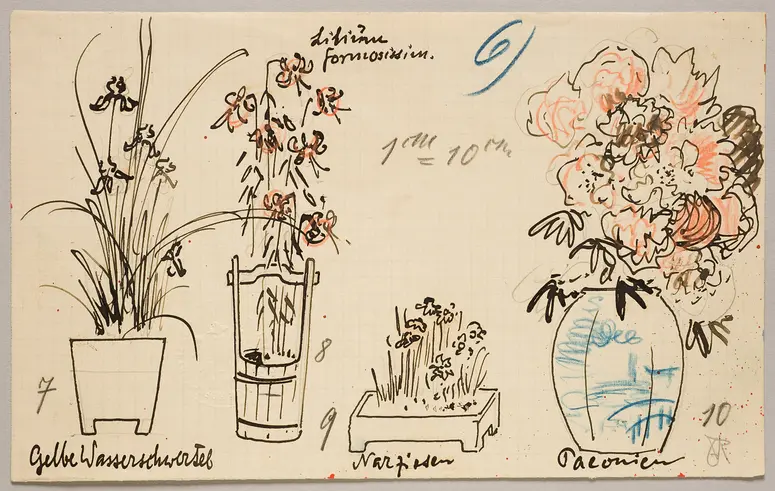 Lilium
formosissim.
6)
1 cm
= 10 cm
7
8
9
10
Gelbe Wasserschwertel
Narzissen
Paeonien